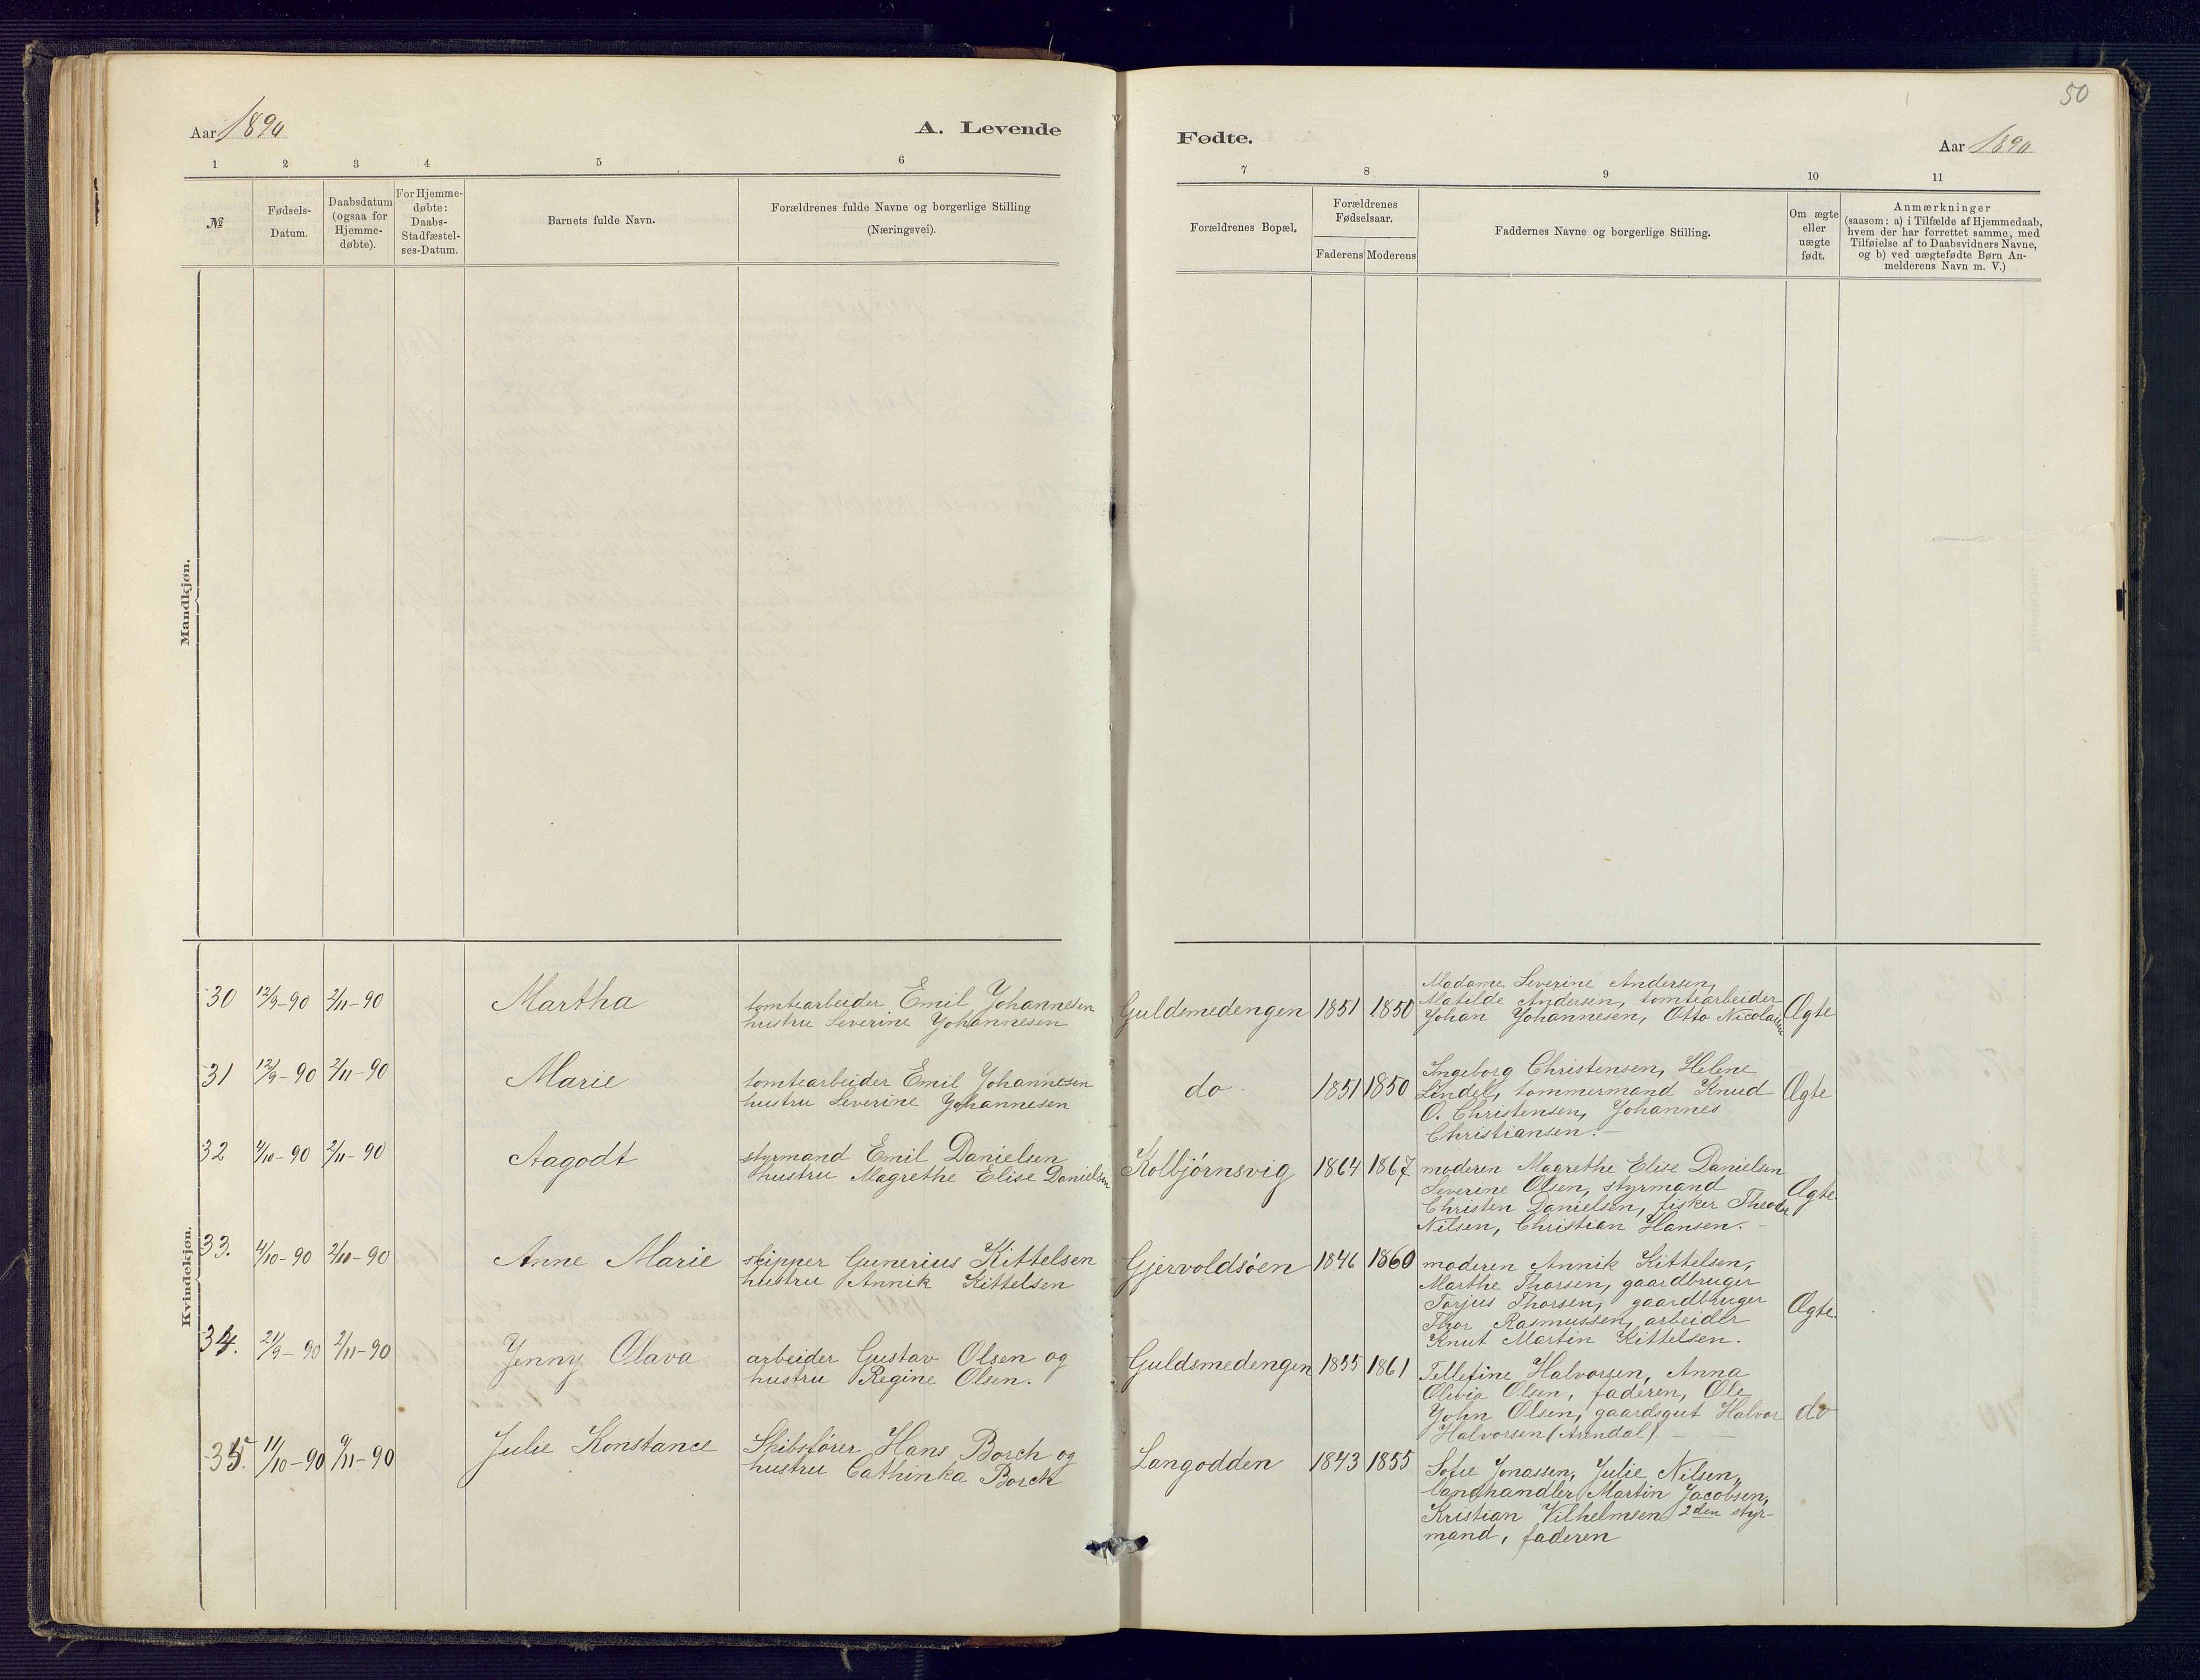 50
Aar 1890
A. Levende
Fødte.
Aar 1890
1 2 3 4 5 6
7 8 9 10 11
№
Fødsels-
Datum.
Daabsdatum
(ogsaa for
Hjemme-
døbte).
For Hjemme-
døbte:
Daabs-
Stadfæstel-
ses-Datum.
Barnets fulde Navn.
Forældrenes fulde Navne og borgerlige Stilling
(Næringsvei).
Forældrenes Bopæl.
Forældrenes
Fødselsaar.
Faderens Moderens
Faddernes Navne og borgerlige Stilling.
Om ægte
eller
uægte
født.
Anmærkninger
(saasom: a) i Tilfælde af Hjemmedaab,
hvem der har forrettet samme, med
Tilføielse af to Daabsvidners Navne,
og b) ved uægtefødte Børn An-
melderens Navn m. V.)
Mandkjøn.
Kvindekjøn.
30 12/9-90 2/11-90 Martha
tomtearbeider Emil Johannesen
hustru Severine Johannesen
Guldsmedengen 1851 1850
Madame Severine Andersen,
Matilde Andersen, tomtearbeider
Johan Johannesen, Otto Nicolaisen
Ægte
31 12/9-90 2/11-90 Marie
tomtearbeider Emil Johannesen
hustru Severine Johannesen
do. 1851 1850
Ingeborg Christensen, Helene
Lindel, tømmermand Knud
O. Christensen, Johannes
Christiansen.-
Ægte
32 4/10-90 2/11-90 Aagodt
styrmand Emil Danielsen
hustru Magrethe Elise Danielsen
Kolbjørnsvig 1864 1867
moderen Magrethe Elise Danielsen
Severine Olsen, styrmand
Christen Danielsen, fisker Theodor
Nilsen, Christian Hansen.-
Ægte.
33. 4/10-90 2/10-90 Anne Marie
skipper Gunerius Kittelsen
hustru Annik Kittelsen
Gjervoldsøen 1846 1860
moderen Annik Kittelsen,
Marthe Thorsen, gaardbruger
Torjus Thorsen, gaardbruger
Thor Rasmussen, arbeider
Knut Martin Kittelsen.
Ægte.
34. 21/9-90 2/11-90 Jenny Olava
arbeider Gustav Olsen og
hustru Regine Olsen.
Guldsmedengen 1855 1861
Tellefine Halvorsen, Anna
Olivia Olsen, faderen, Ole
John Olsen, gaardsgut Halvor
Halvorsen (Arendal).-
do
35. 11/10-90 9/11-90 Julie Konstance
Skibsfører Hans Borch og
hustru Cathinka Borch
Langodden 1843 1855
Sofie Jonassen, Julie Nilsen,
landhandler Martin Jacobsen,
Kristian Vilhelmsen 2den styr-
mand, faderen